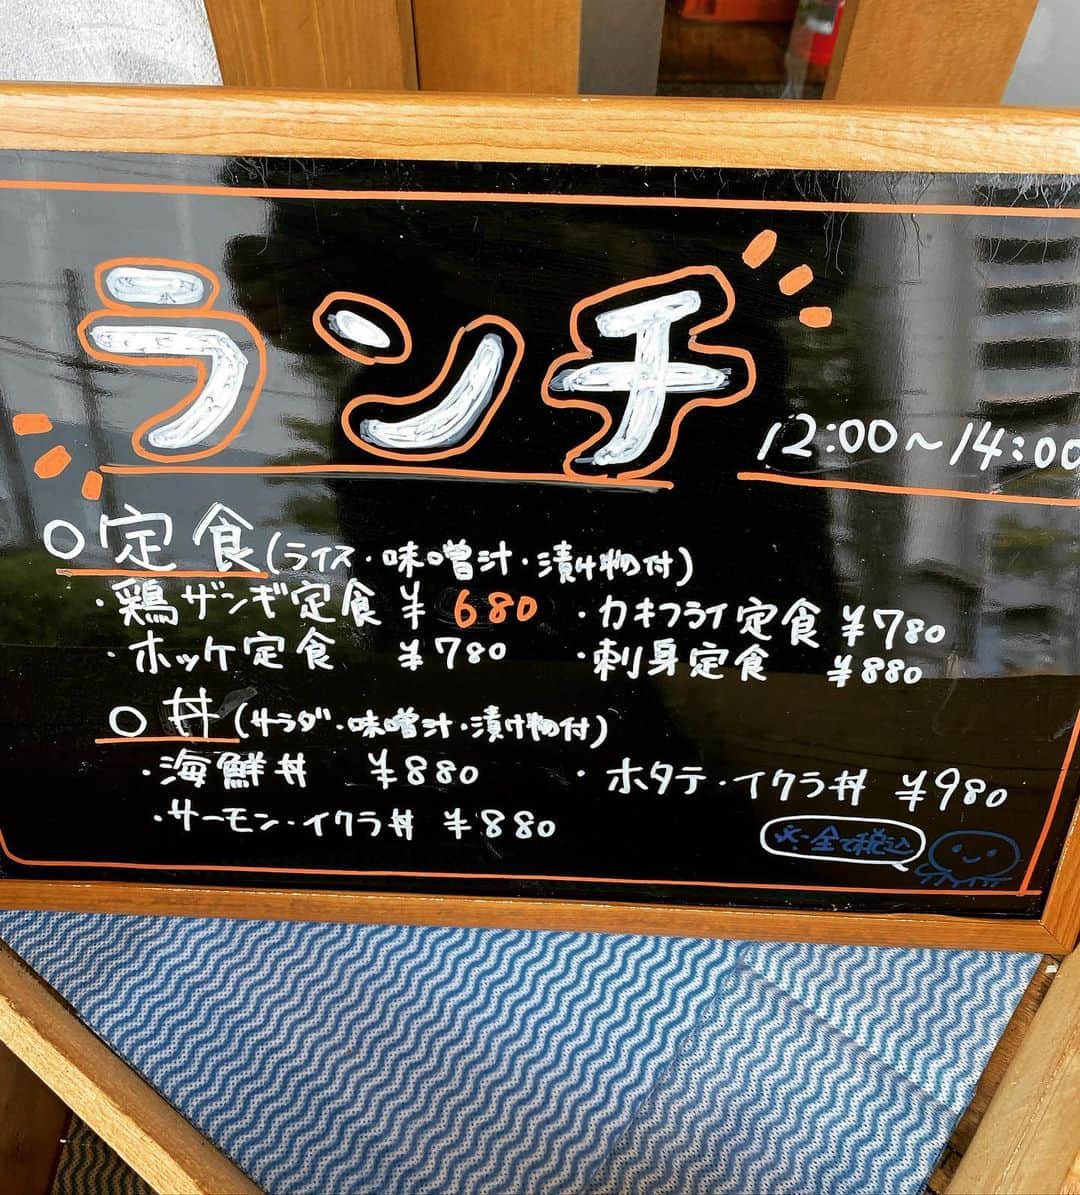 ランチ 12:00～14:00
○定食(ライス・味噌汁・漬け物付)
・鶏ザンギ定食 ¥680 ・カキフライ定食 ¥780
・ホッケ定食 ¥780 ・刺身定食 ¥880
○丼(サラダ・味噌汁・漬け物付)
・海鮮丼 ¥880 ・ホタテ・イクラ丼 ¥980
・サーモン・イクラ丼 ¥880
※全て税込